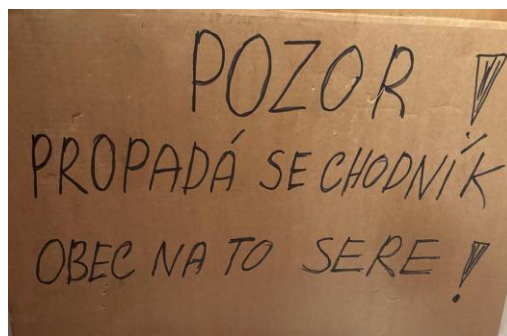 POZOR!
PROPADÁ SE CHODNÍK
OBEC NA TO SERE!